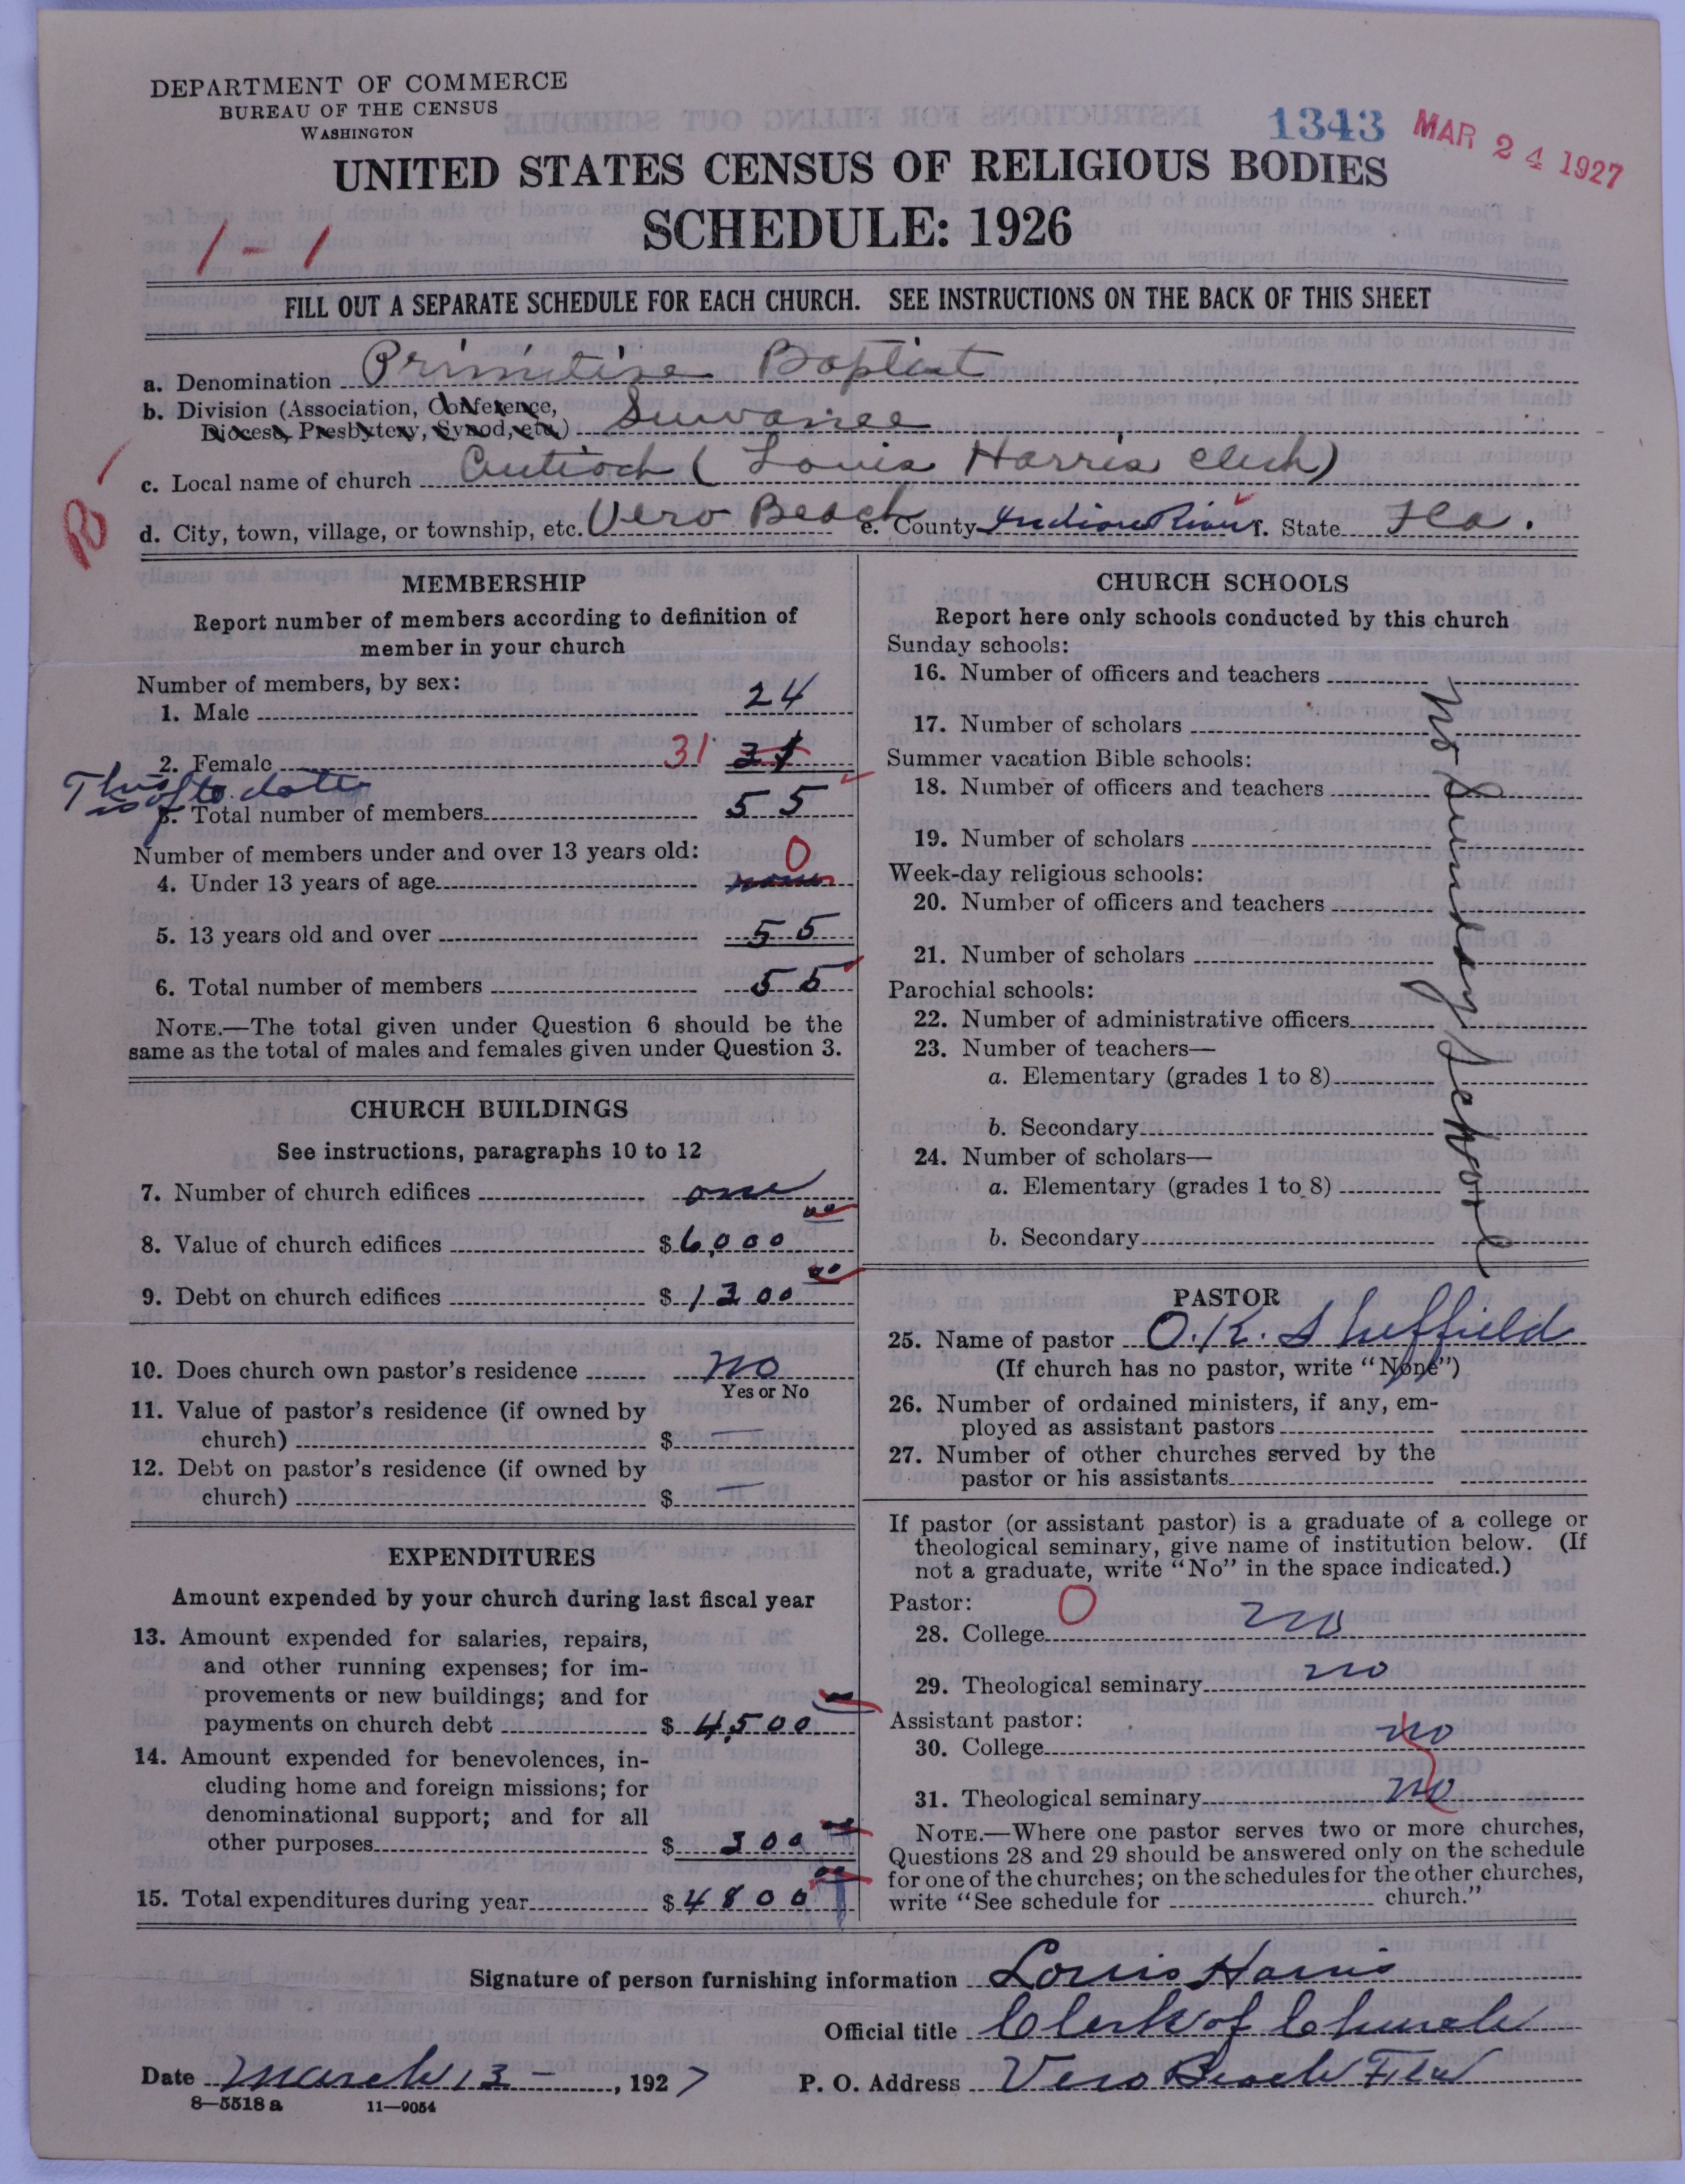 DEPARTMENT OF COMMERCE
BUREAU OF THE CENSUS
WASHINGTON
1343 MAR 24 1927
UNITED STATES CENSUS OF RELIGIOUS BODIES
SCHEDULE: 1926
1-1
FILL OUT A SEPARATE SCHEDULE FOR EACH CHURCH. SEE INSTRUCTIONS ON THE BACK OF THIS SHEET
a. Denomination Primitive Baptist
b. Division (Association, Conference,
Diocese, Presbytery, Synod, etc.) Suwanee
c. Local name of church Antioch (Louis Harris clerk)
d. City, town, village, or township, etc. Vero Beach e. County Indian River f. State Fla.
MEMBERSHIP
Report number of members according to definition of
member in your church
Number of members, by sex:
1. Male 24
2. Female 31 31
This is up to date
3. Total number of members 55
Number of members under and over 13 years old:
4. Under 13 years of age 0 none
5. 13 years old and over 55
6. Total number of members 55
NOTE.—The total given under Question 6 should be the
same as the total of males and females given under Question 3.
CHURCH BUILDINGS
See instructions, paragraphs 10 to 12
7. Number of church edifices one
8. Value of church edifices $6,000 00
9. Debt on church edifices $1300 00
10. Does church own pastor's residence no
Yes or No
11. Value of pastor's residence (if owned by
church) $ —
12. Debt on pastor's residence (if owned by
church) $ —
EXPENDITURES
Amount expended by your church during last fiscal year
13. Amount expended for salaries, repairs,
and other running expenses; for im-
provements or new buildings; and for
payments on church debt $4,500
14. Amount expended for benevolences, in-
cluding home and foreign missions; for
denominational support; and for all
other purposes $300 00
15. Total expenditures during year $4800 00
CHURCH SCHOOLS
Report here only schools conducted by this church
Sunday schools:
16. Number of officers and teachers
17. Number of scholars
Summer vacation Bible schools:
18. Number of officers and teachers
19. Number of scholars
Week-day religious schools:
20. Number of officers and teachers
21. Number of scholars
Parochial schools:
22. Number of administrative officers
23. Number of teachers—
a. Elementary (grades 1 to 8)
b. Secondary
24. Number of scholars—
a. Elementary (grades 1 to 8)
b. Secondary
no Sunday School
PASTOR
25. Name of pastor O.K. Sheffield
(If church has no pastor, write "None")
26. Number of ordained ministers, if any, em-
ployed as assistant pastors
27. Number of other churches served by the
pastor or his assistants
If pastor (or assistant pastor) is a graduate of a college or
theological seminary, give name of institution below. (If
not a graduate, write "No" in the space indicated.)
Pastor: 0
28. College no
29. Theological seminary no
Assistant pastor:
30. College no
31. Theological seminary no
NOTE.—Where one pastor serves two or more churches,
Questions 28 and 29 should be answered only on the schedule
for one of the churches; on the schedules for the other churches,
write "See schedule for church."
Signature of person furnishing information Louis Harris
Official title Clerk of Church
Date March 13 —, 1927 P. O. Address Vero Beach Fla
8—5518 a 11—9054